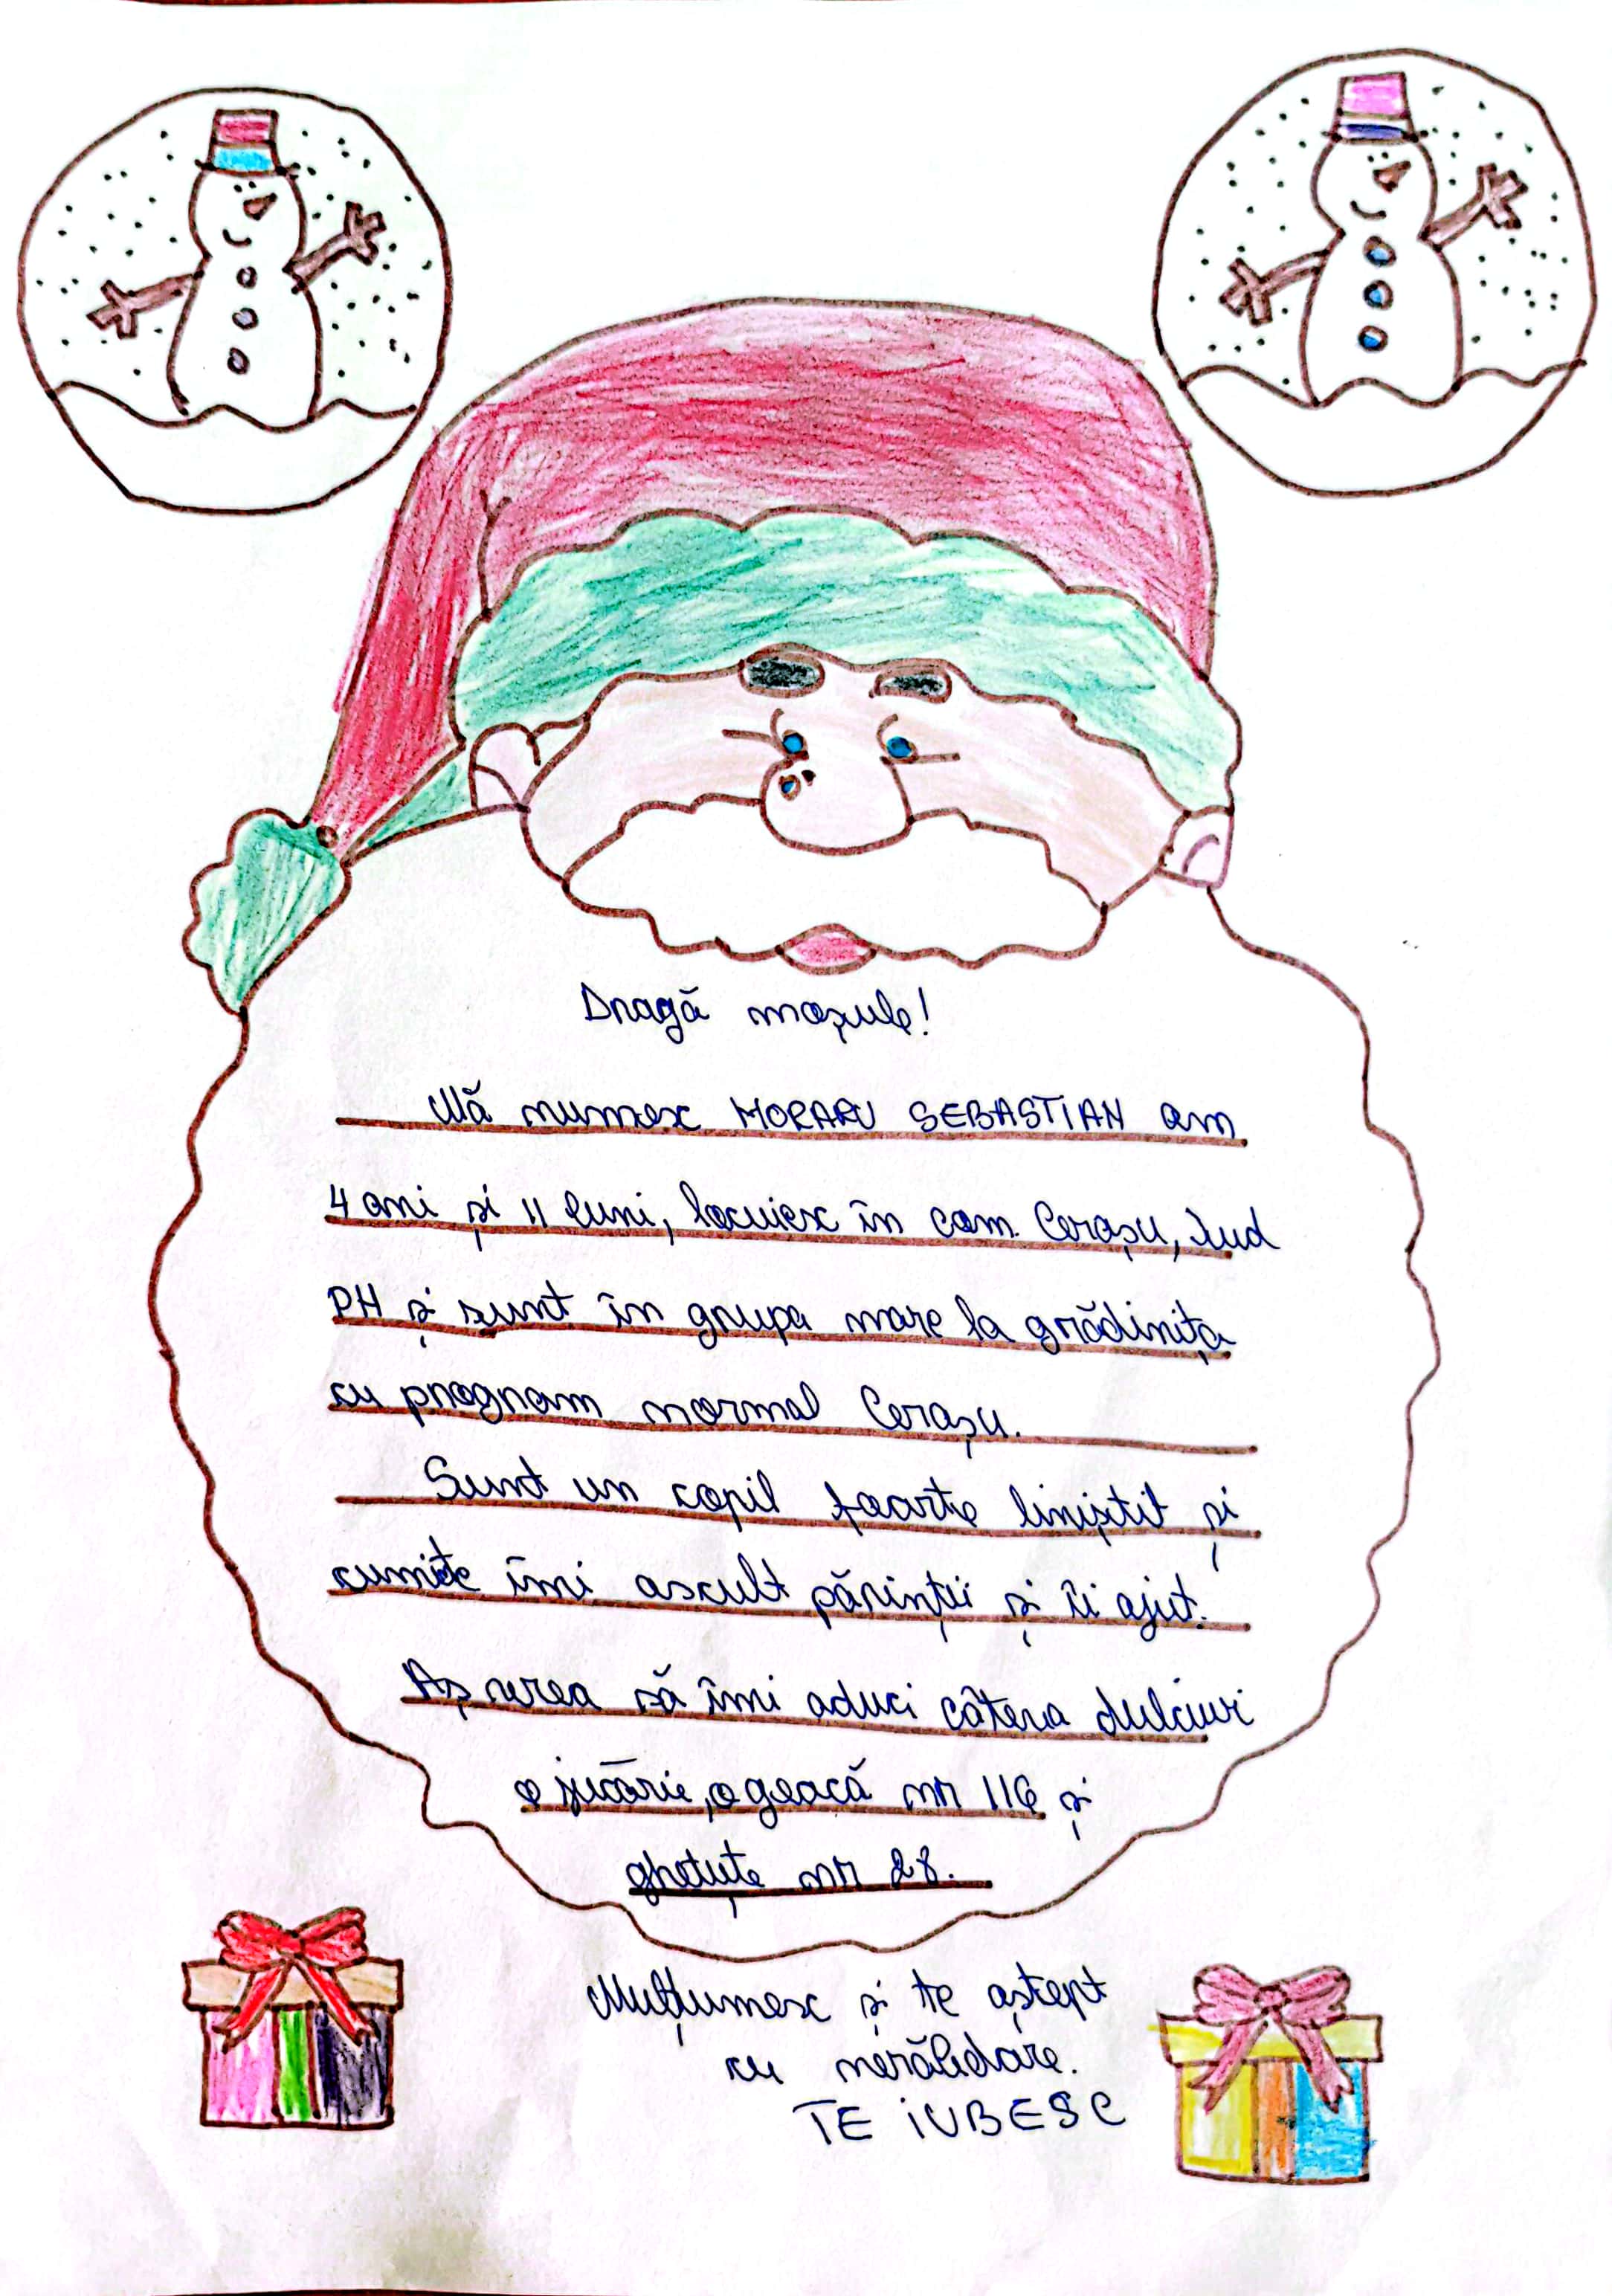 Dragă moșule!
Mă numesc MORARU SEBASTIAN am
4 ani și 11 luni, locuiesc în com. Cerașu, Jud
PH și sunt în grupa mare la grădinița
cu program normal Cerașu.
Sunt un copil foarte liniștit și
cuminte îmi ascult părinții și îi ajut.
Aș vrea să îmi aduci câteva dulciuri
o jucărie, o geacă nr 116 și
ghetuțe nr 28.
Mulțumesc și te aștept
cu nerăbdare.
TE IUBESC